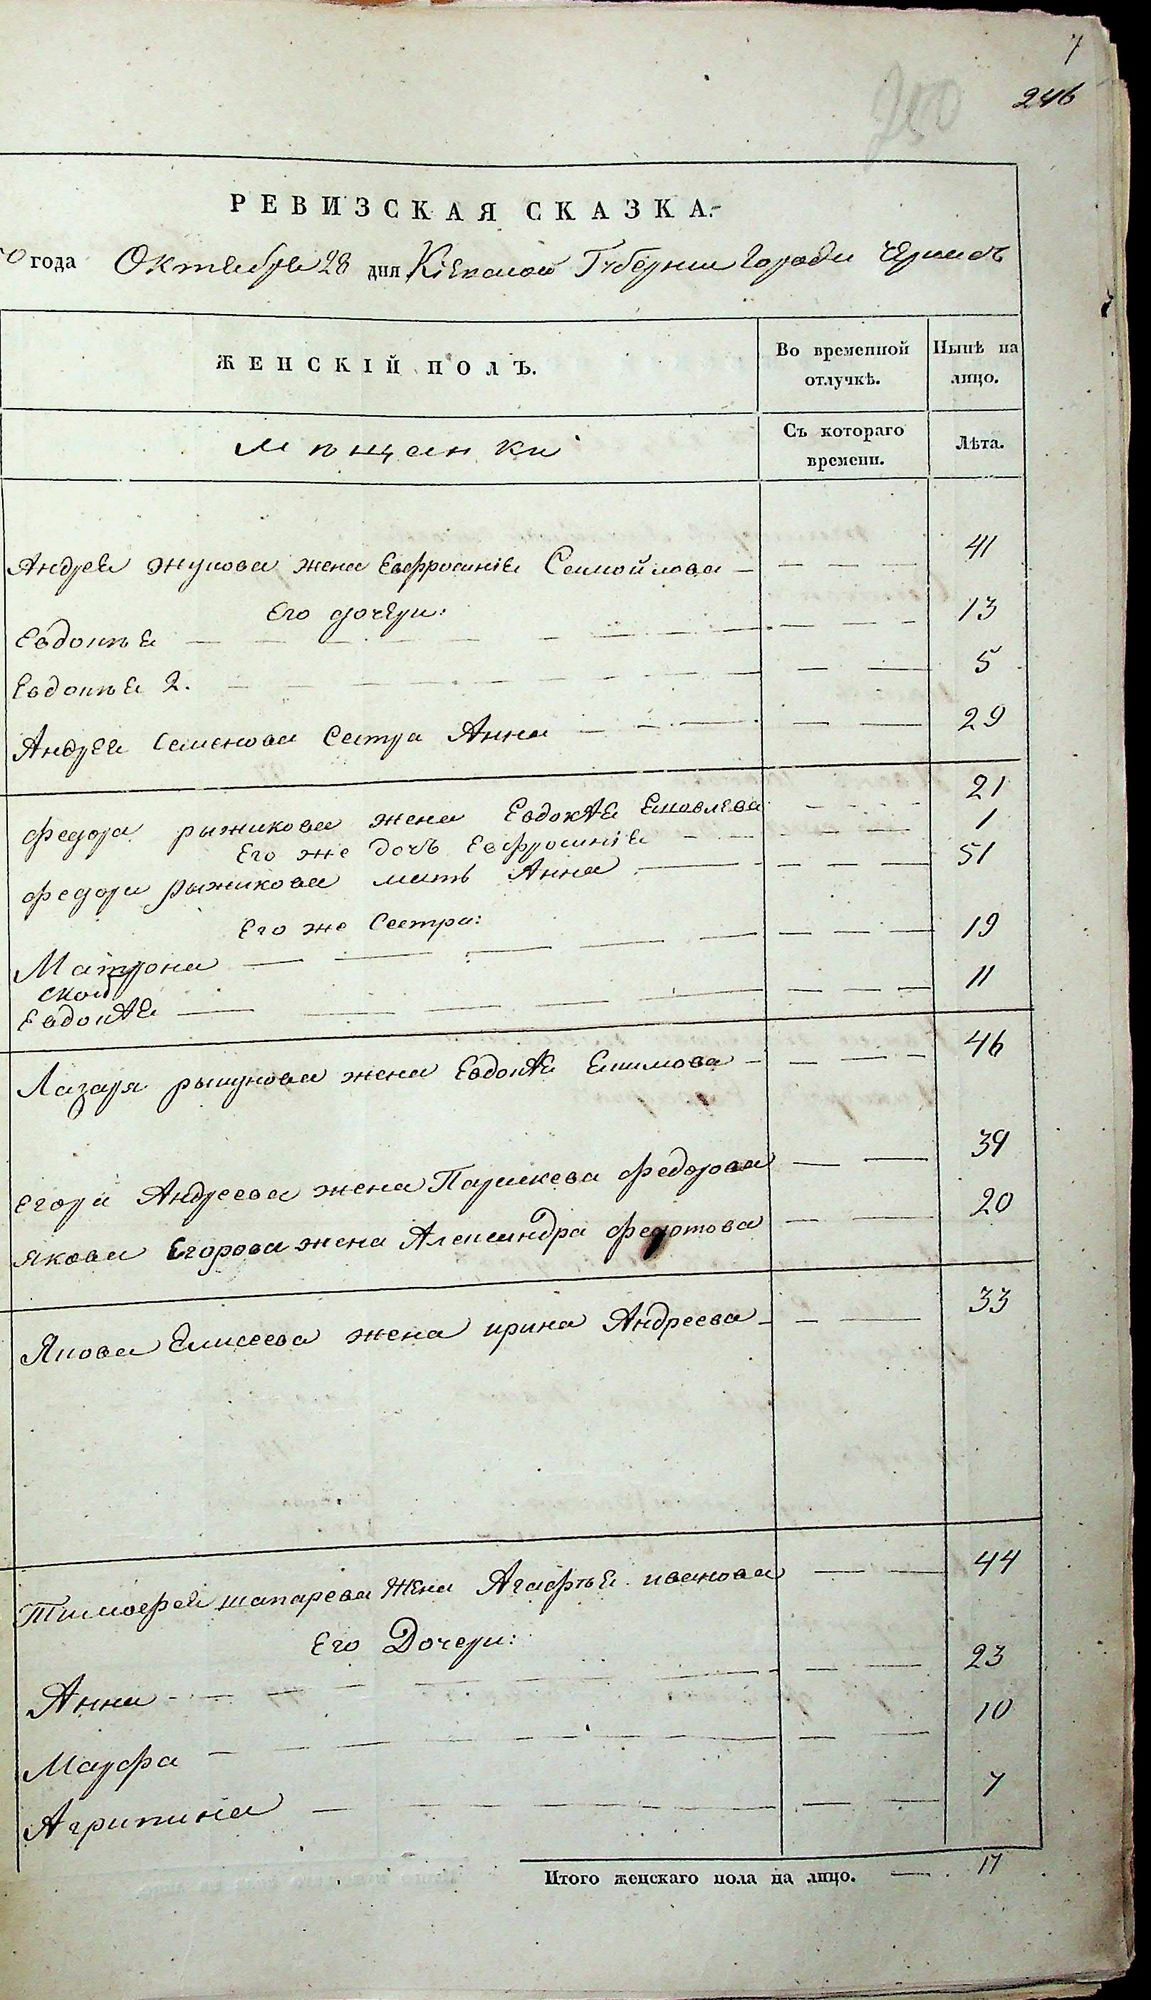 7
246
250
РЕВИЗСКАЯ СКАЗКА.
50 года Октября 28 дня Кіевской Губерніи Города Черкасъ
ЖЕНСКІЙ ПОЛЪ.
Во временной отлучкѣ.
Нынѣ на лицо.
Мѣщанки
Съ котораго времени.
Лѣта.
Андрея Жукова жена Евфросинія Самойлова 41
Его дочери:
Евдокѣя 13
Евдокѣя 2. 5
Андрея Семенова Сестра Анна 29
Федора рыжикова жена Евдокѣя Яковлева 21
Его же Дочь Евфросинія 1
Федора рыжикова мать Анна 51
Его же Сестра:
Матрона 19
Евдокѣя 11
Лазаря жена Евдокѣя Екимова 46
Егора Андреева жена Параскева Федорова 39
Якова Егорова жена Александра Федотова 20
Якова Елисеева жена ирина Андреева 33
Тимофея шапарева Жена Агафѣя иванова 44
Его Дочери:
Анна 23
Марфа 10
Агрипина 7
Итого женскаго пола на лицо. 17